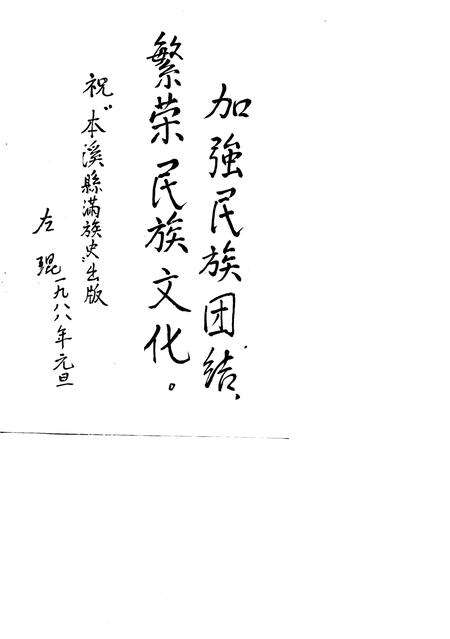 加強民族团结、
繁荣民族文化。
祝"本溪縣滿族史"出版
左琨
一九八八年元旦